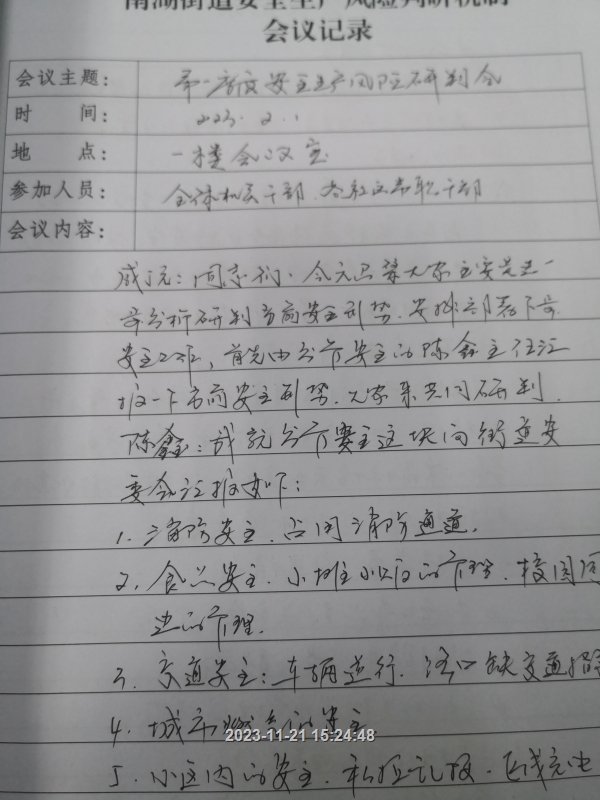 南湖街道安全生产风险判研机制
会议记录
会议主题: 第一季度安全生产风险研判会
时 间: 2023. 2. 1
地 点: 一楼会议室
参加人员: 全体机关干部、各社区专职干部
会议内容:
同志们、今天召集大家主要是
分析研判当前安全形势、安排部署下
安全工作,首先由分管安全的陈鑫主任汇
报一下当前安全形势、大家来共同研判
陈鑫:我就分管安全这块向街道安
委会汇报如下:
1、消防安全、占用消防通道、
2、食品安全、小摊小贩的管理、校园周
边的管理.
3、交通安全:车辆逆行、路口缺交通指
4、城市燃气的安全
2023-11-21 15:24:48
5、小区内的安全、私拉乱接、飞线充电